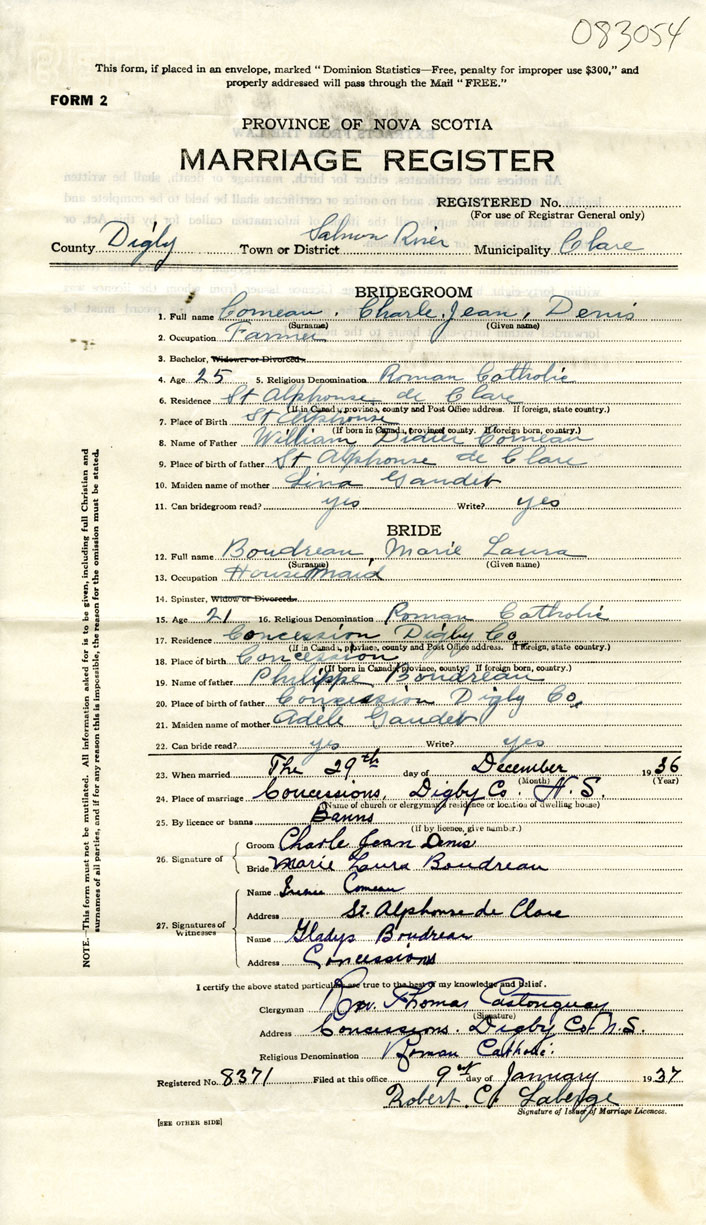 083054
This form, if placed in an envelope, marked "Dominion Statistics—Free, penalty for improper use $300," and
properly addressed will pass through the Mail "FREE."
FORM 2
PROVINCE OF NOVA SCOTIA
MARRIAGE REGISTER
REGISTERED No.
(For use of Registrar General only)
County Digby Town or District Salmon River Municipality Clare
BRIDEGROOM
1. Full name Comeau, Charle Jean, Denis
(Surname) (Given name)
2. Occupation Farmer
3. Bachelor, Widower or Divorced
4. Age 25 5. Religious Denomination Roman Catholic
6. Residence St Alphonse de Clare
(If in Canada, province, county and Post Office address. If foreign, state country.)
7. Place of Birth St Alphonse
(If born in Canada, province, county. If foreign born, country.)
8. Name of Father William Didier Comeau
9. Place of birth of father St Alphonse de Clare
10. Maiden name of mother Lina Gaudet
11. Can bridegroom read? yes Write? yes
BRIDE
12. Full name Boudreau, Marie Laura
(Surname) (Given name)
13. Occupation House Maid
14. Spinster, Widow or Divorced
15. Age 21 16. Religious Denomination Roman Catholic
17. Residence Concession Digby Co
(If in Canada, province, county and Post Office address. If foreign, state country.)
18. Place of birth Concession
(If born in Canada, province, county. If foreign born, country.)
19. Name of father Philippe Boudreau
20. Place of birth of father Concession Digby Co,
21. Maiden name of mother Adèle Gaudet
22. Can bride read? yes Write? yes
23. When married The 29th day of December 1936
(Month) (Year)
24. Place of marriage Concessions, Digby Co. N.S.
(Name of church or clergyman's residence or location of dwelling house)
25. By licence or banns Banns
(If by licence, give number.)
26. Signature of
Groom Charle Jean Denis
Bride Marie Laura Boudreau
27. Signatures of Witnesses
Name Comeau
Address St. Alphonse de Clare
Name Gladys Boudreau
Address Concessions
I certify the above stated particulars are true to the best of my knowledge and belief.
Clergyman Rev. Thomas Castonguay
(Signature)
Address Concessions. Digby Co. N.S.
Religious Denomination Roman Catholic.
Registered No. 8371 Filed at this office 9 day of January 1937
Robert C. Laberge
Signature of Issuer of Marriage Licences.
[SEE OTHER SIDE]
NOTE.—This form must not be mutilated. All information asked for is to be given, including full Christian and
surnames of all parties, and if for any reason this is impossible, the reason for the omission must be stated.